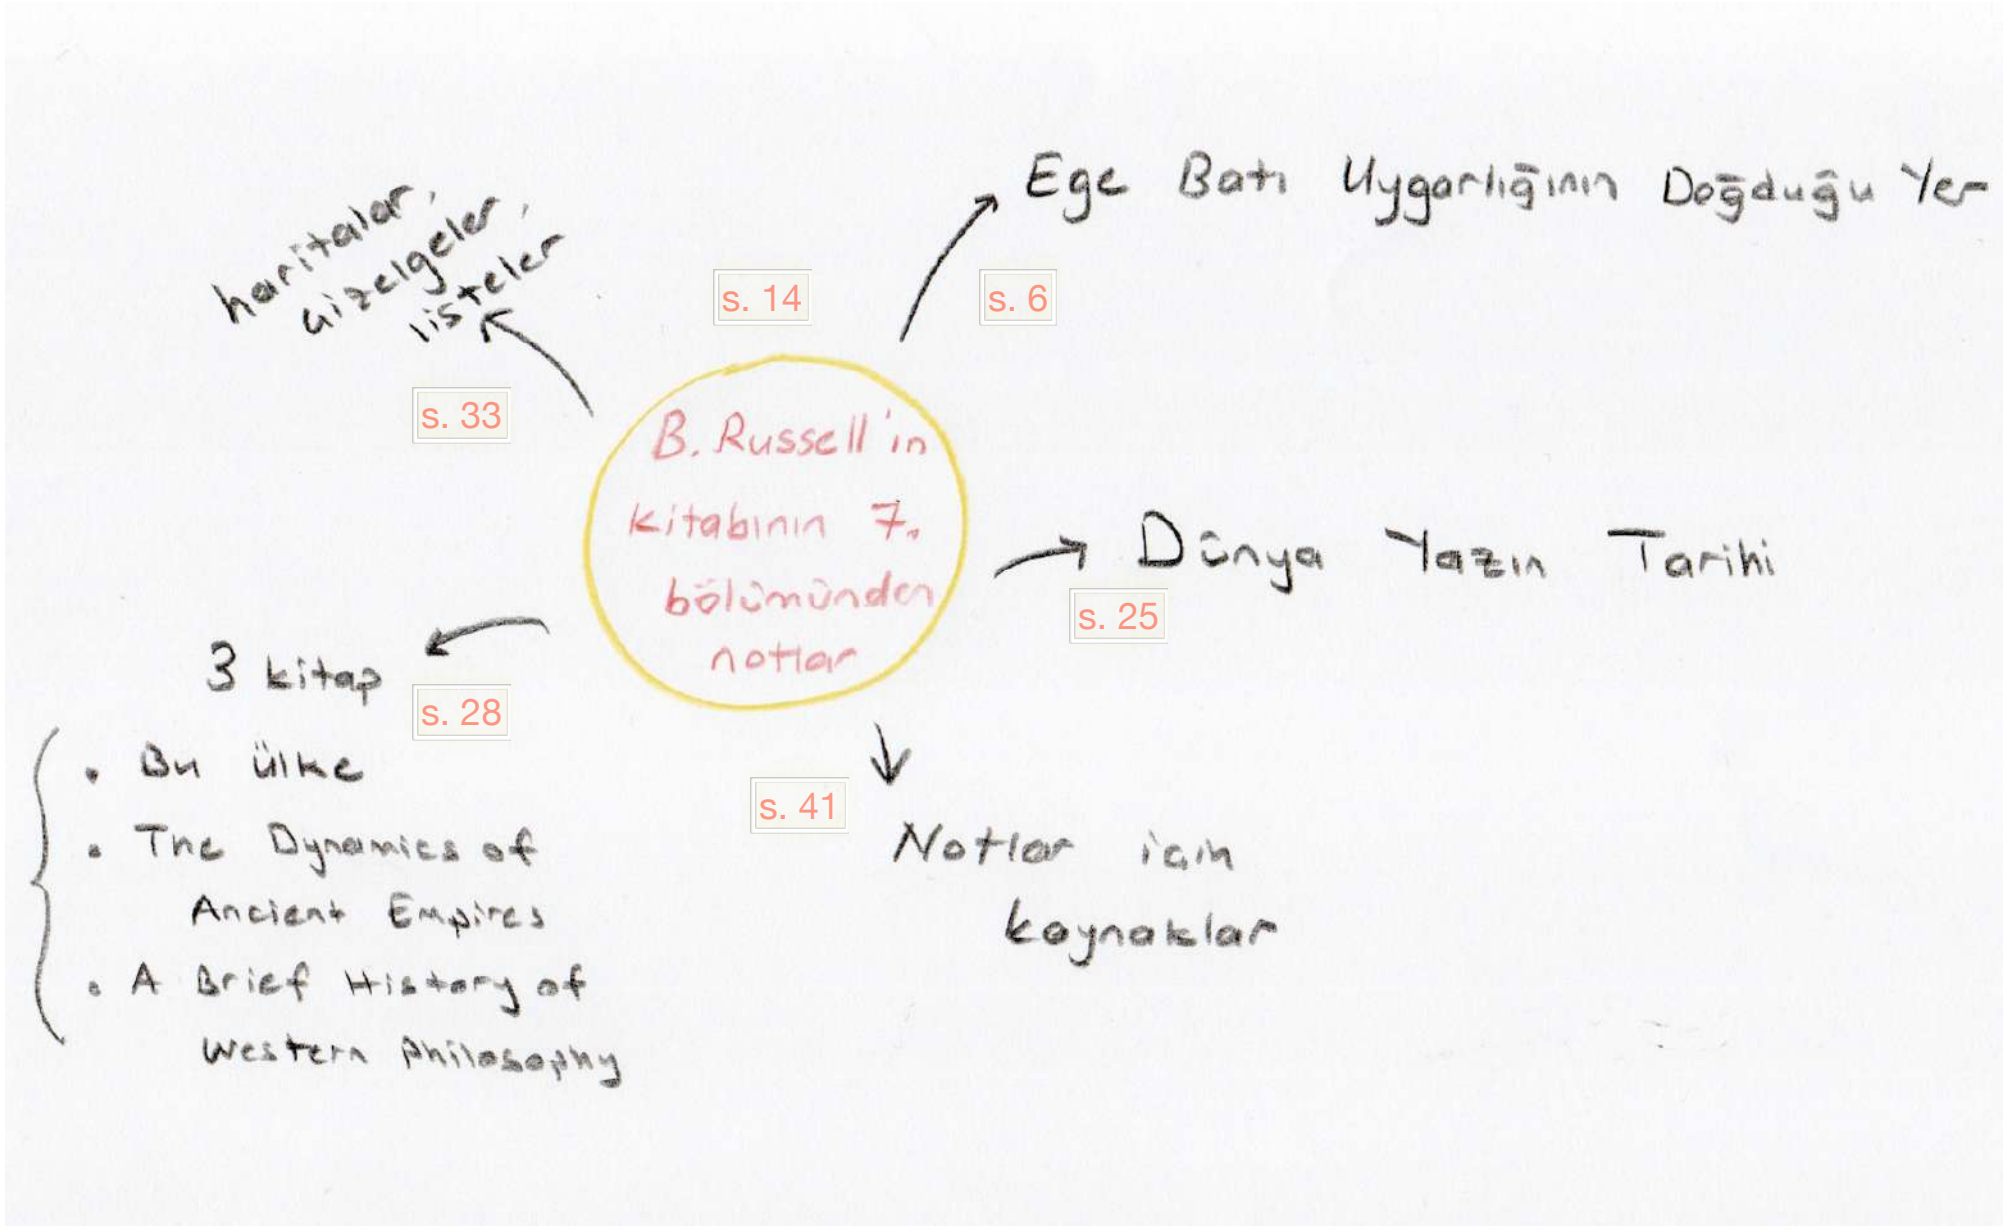 haritalar,
çizelgeler,
listeler
s. 33
s. 14
Ege Batı Uygarlığının Doğduğu Yer
s. 6
B. Russell'in
kitabının 7.
bölümünden
notlar
Dünya Yazın Tarihi
s. 25
3 kitap
s. 28
• Bu ülke
• The Dynamics of
Ancient Empires
• A Brief History of
Western philosophy
s. 41
Notlar için
kaynaklar